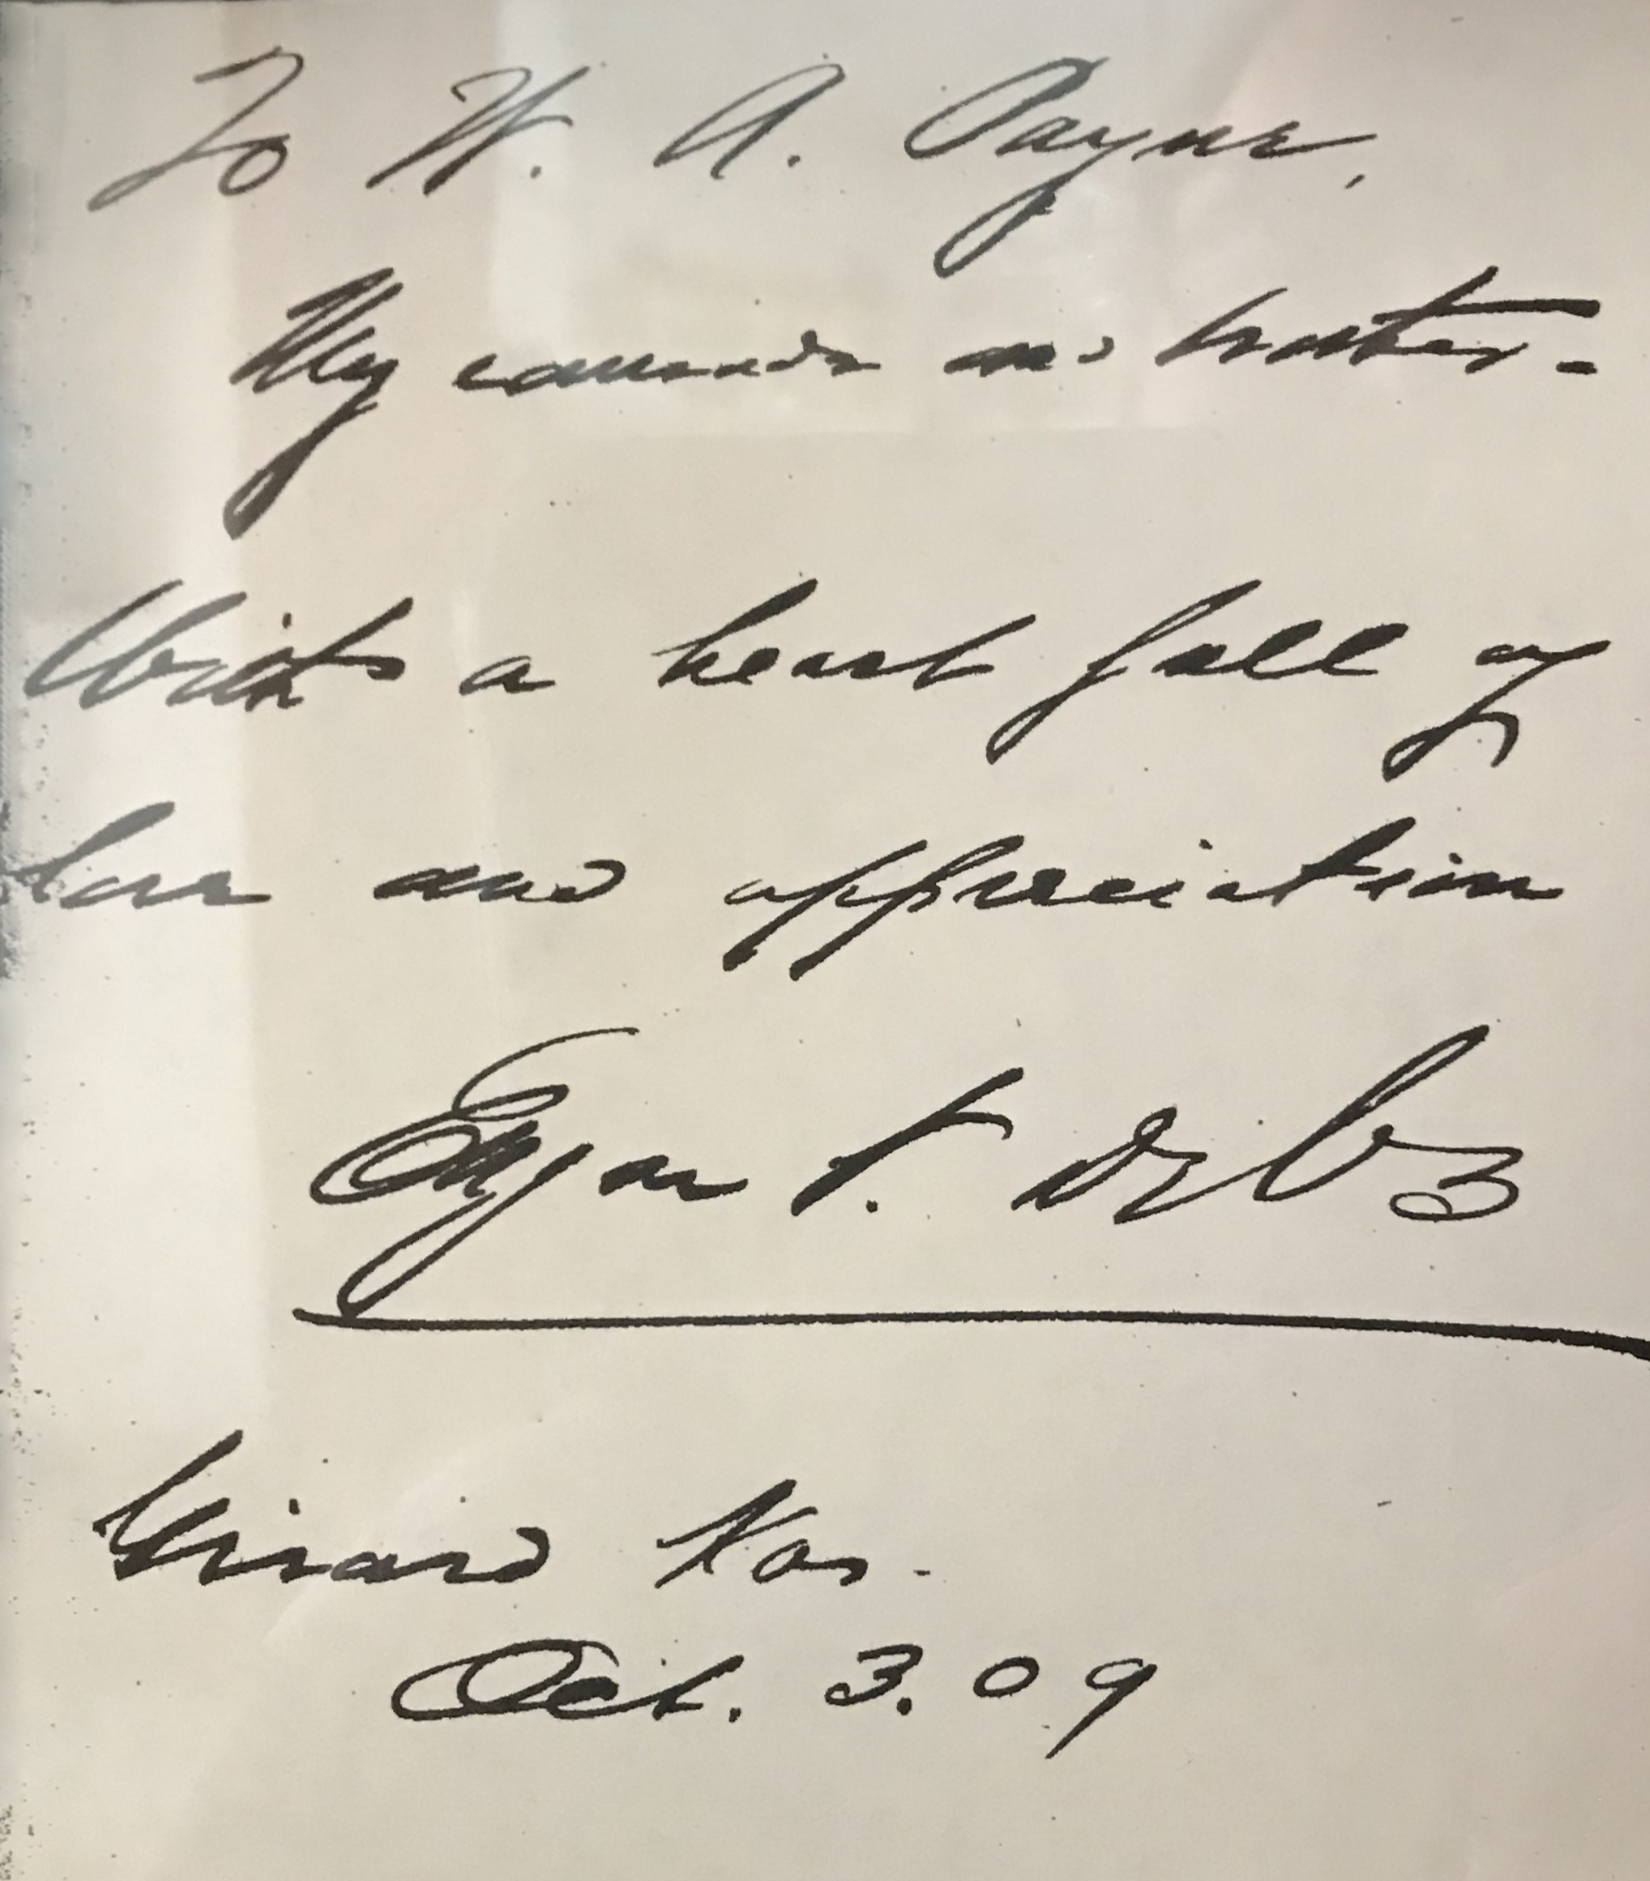 To W. A. Payne,
My comrade and brother -
With a heart full of
love and appreciation
Eugene V. Debs
Girard Kas.
Oct. 3. 09